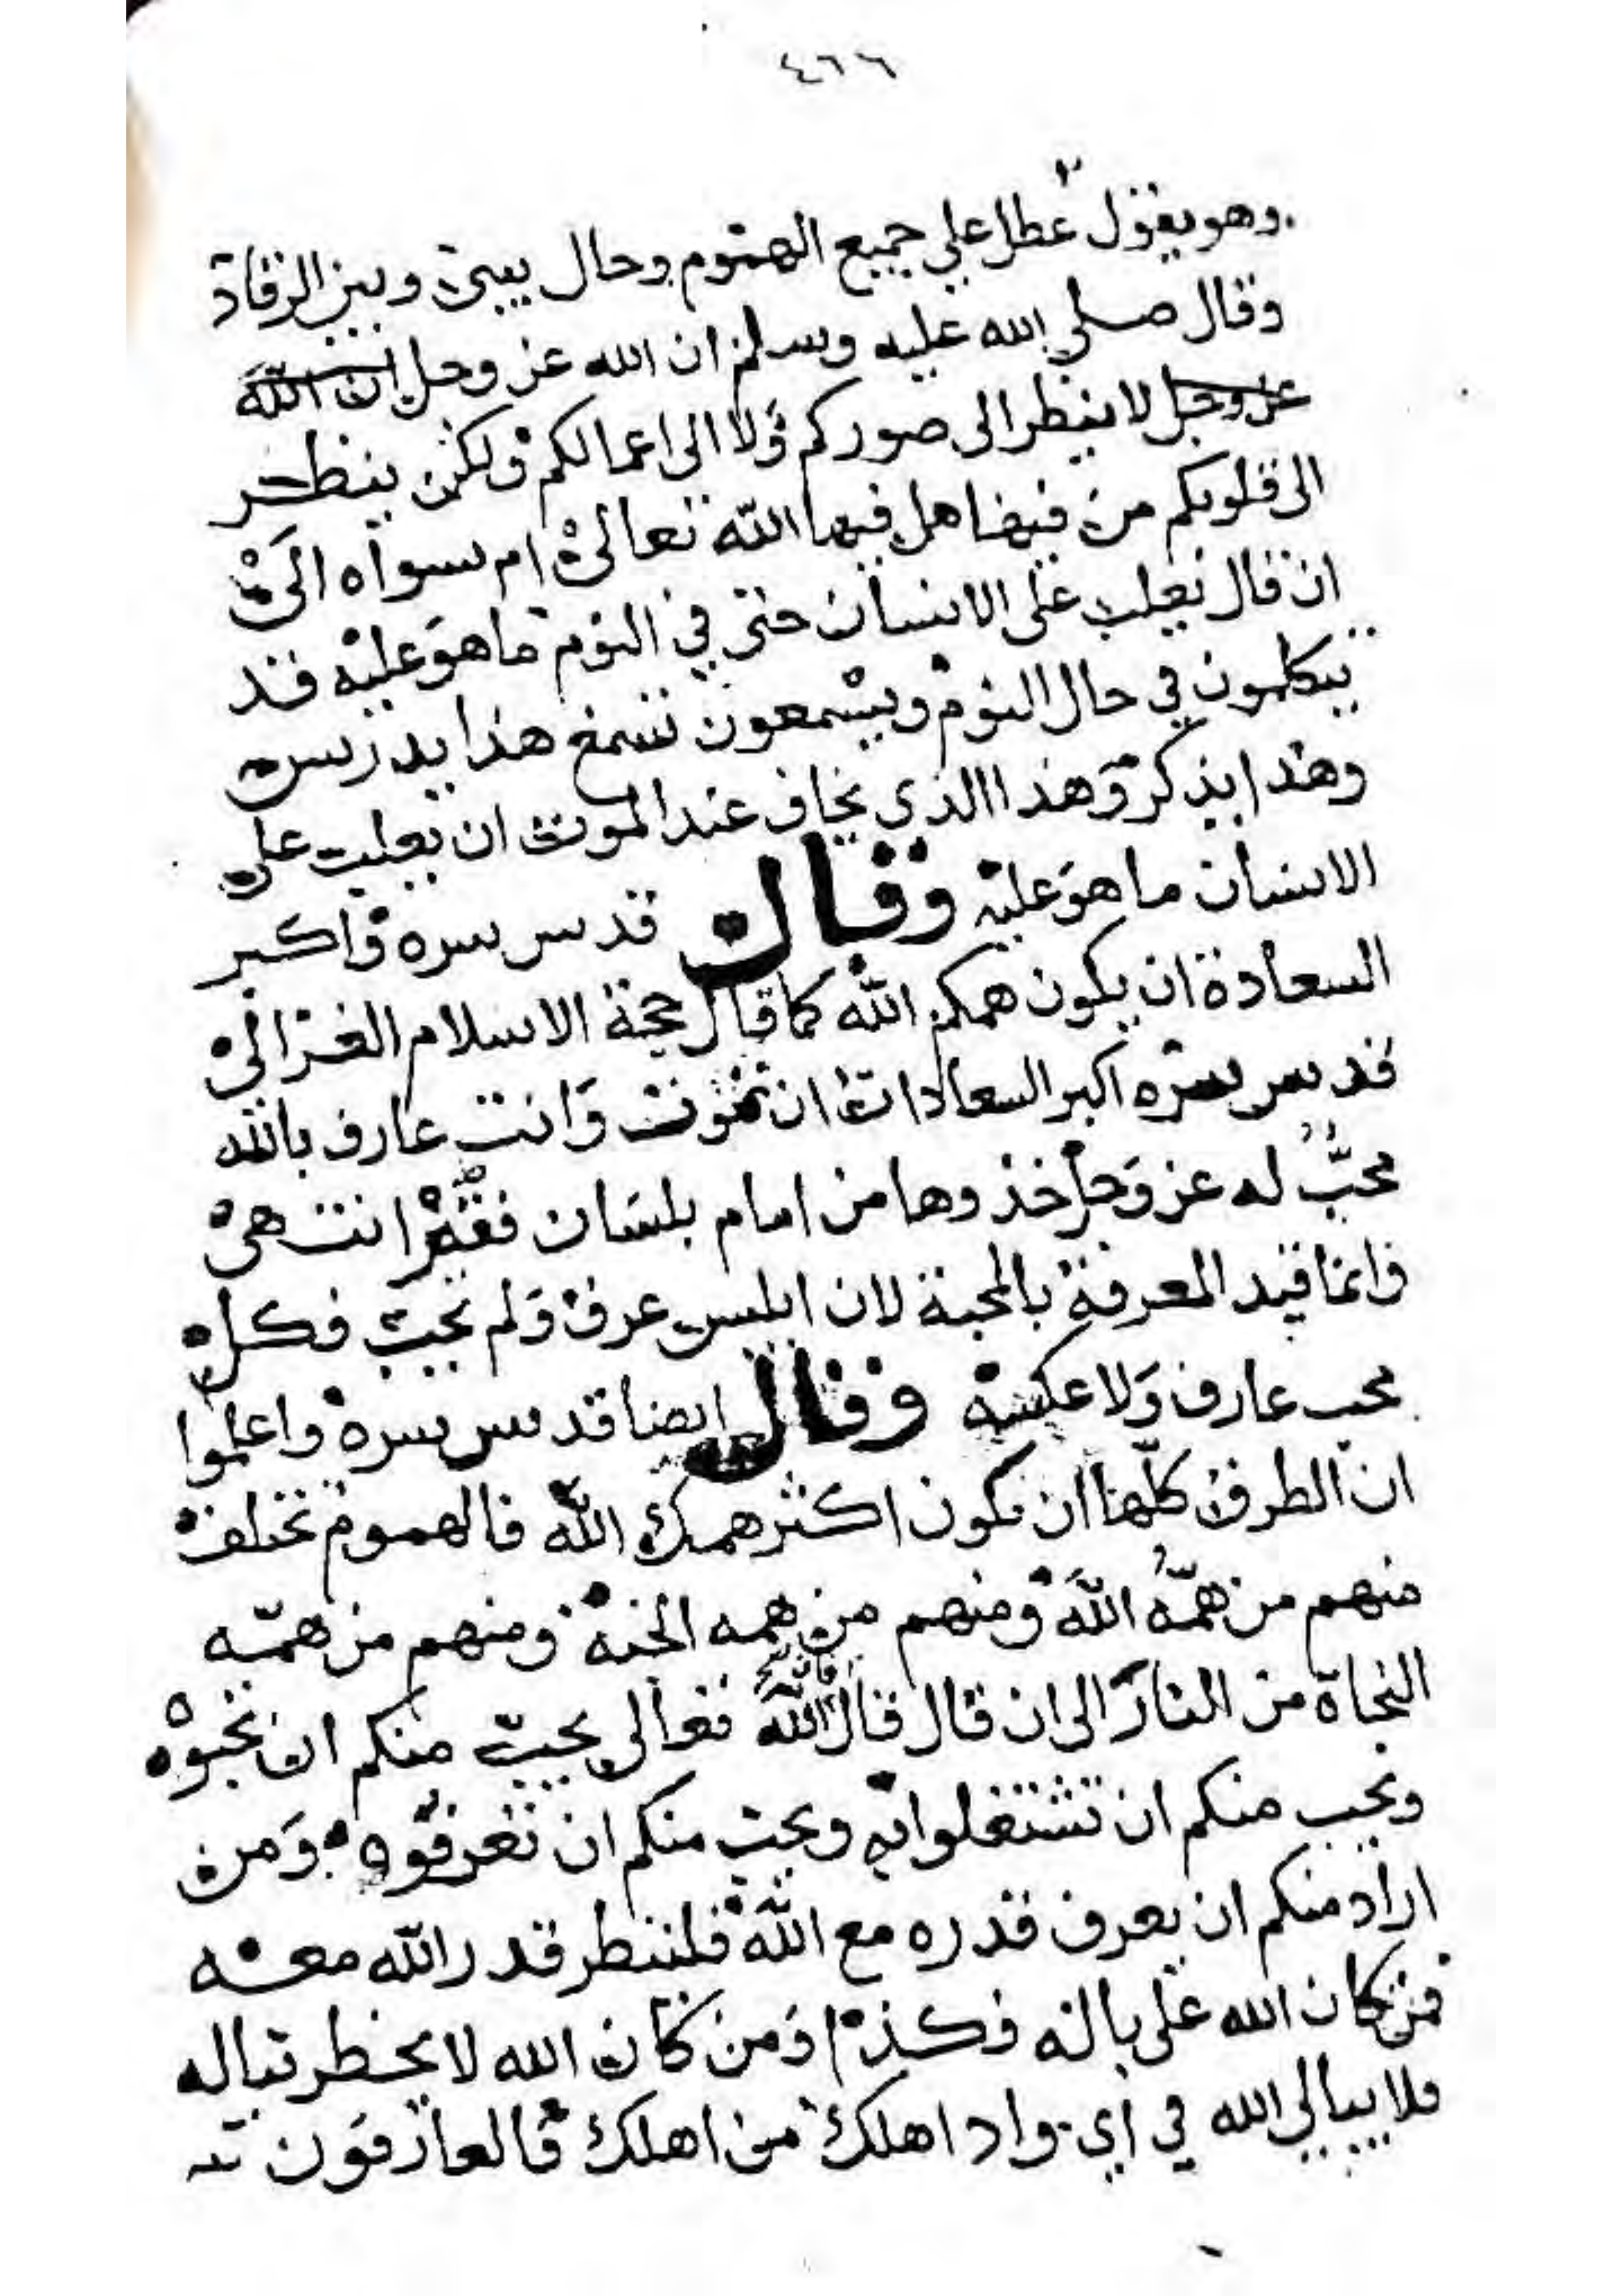 ٤٦٦
وهو يقول عطل علي جميع الهموم وحال بيني وبين الرقاد
وقال صلي الله عليه وسلم ان الله عز وجل ان الله
عز وجل لا ينظر الى صوركم ولا الى اعمالكم ولكن ينظر
الى قلوبكم من فيها هل فيها الله تعالى ام سواه الى
ان قال يغلب على الانسان حتى في النوم ما هو عليه قد
يتكلمون في حال النوم ويسمعون تسمع هذا يدرس
وهذا يذكر وهذا الذي يخاف عند الموت ان يغلب على
الانسان ما هو عليه وقال قدس سره واكبر
السعادة ان يكون همكم الله كما قال حجة الاسلام الغزالي
قدس سره اكبر السعادات ان تموت وانت عارف بالله
محبٌّ له عز وجل خذوها من امام بلسان فقير انتهى
وانما قيد المعرفة بالمحبة لان ابليس عرف ولم يحب فكل
محب عارف ولا عكس وقال ايضا قدس سره واعلموا
ان الطرق كلها ان يكون اكثر همك الله فالهموم تختلف
منهم من همّهُ اللهَ ومنهم من همه الجنة ومنهم من همّه
النجاة من النار الى ان قال قال الله تعالى يحب منكم ان تحبوه
ويحب منكم ان تشتغلوا به ويحب منكم ان تعرفوه ومن
اراد منكم ان يعرف قدره مع الله فلينظر قدر الله معه
فمن كان الله على باله فكذا ومن كان الله لا يخطر بباله
فلا يبالي الله في اي واد اهلك من اهلك فالعارفون